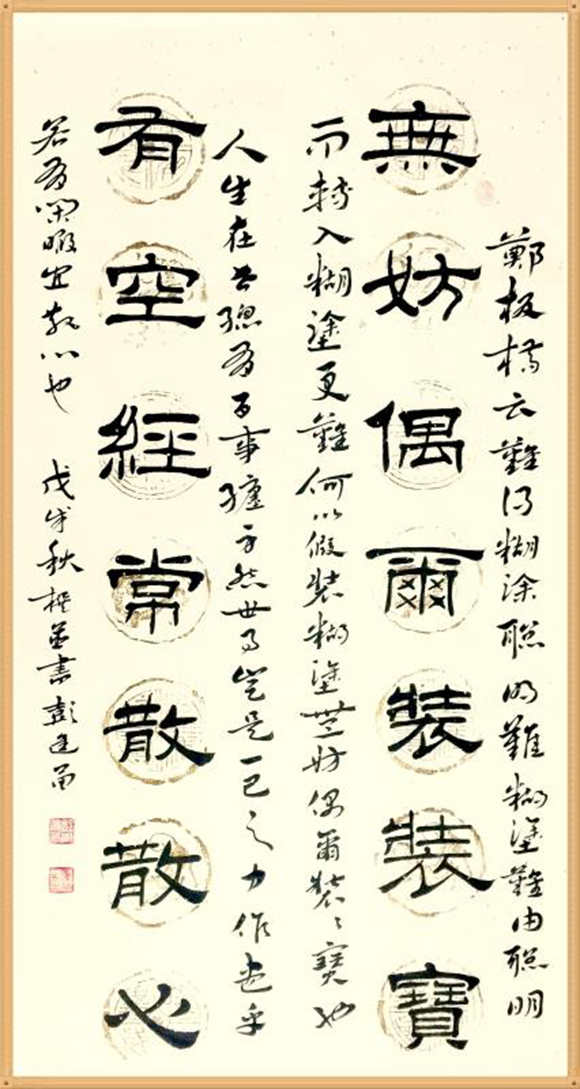 鄭板橋云難得糊涂聰明難糊塗難由聰明
無妨偶爾裝裝寶
而轉入糊塗更難何以假裝糊塗無妨偶爾裝裝寶也
人生在世總有百事纏身然世事豈是一己之力作為乎
有空經常散散心
若有閑暇宜散心也 戊戌秋撰並書彭